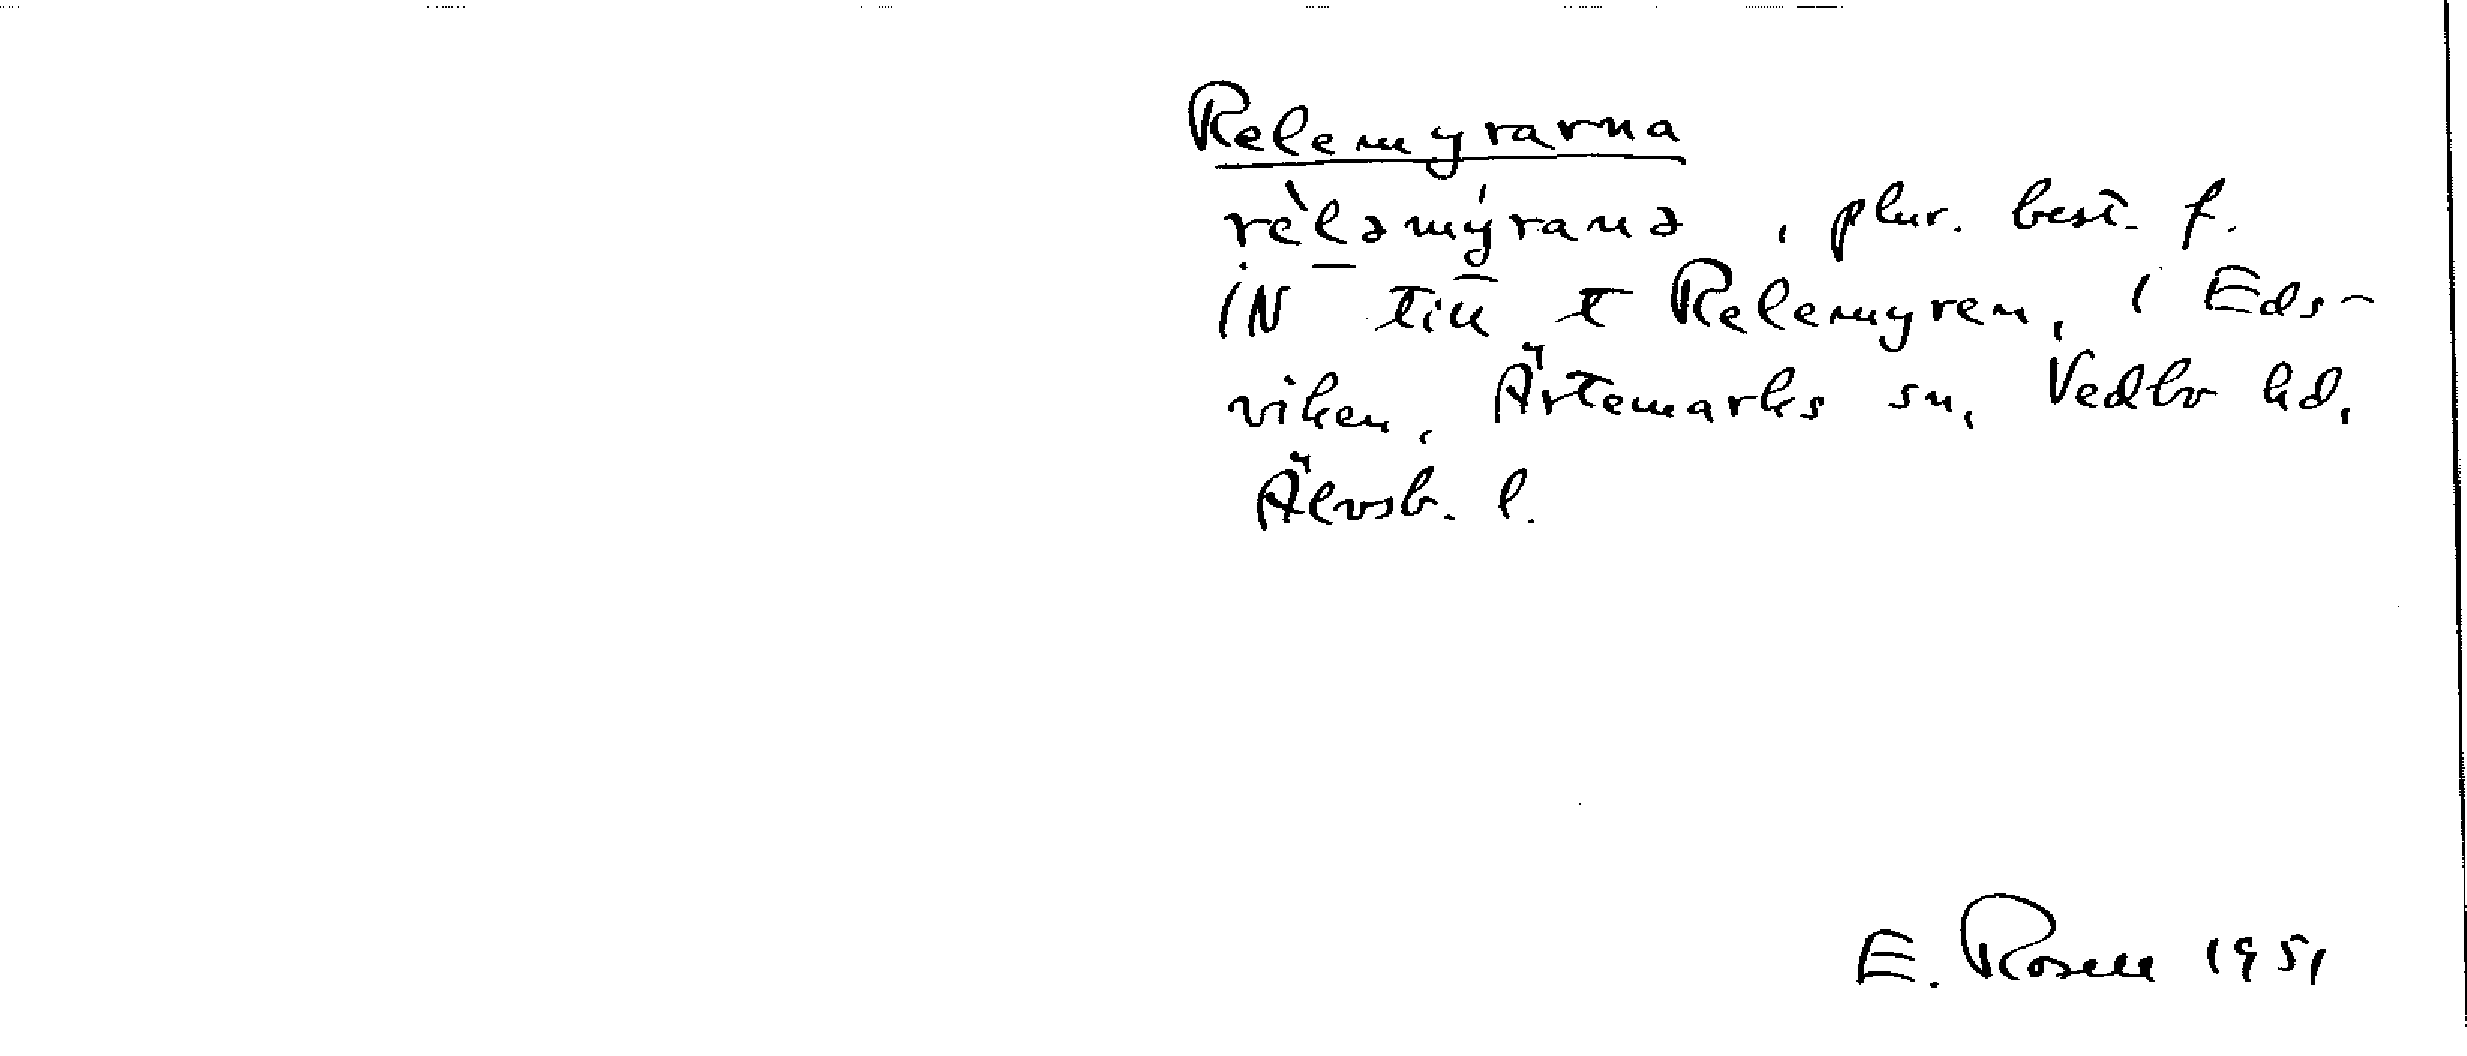 Relemyrarna
rèlǝmýranǝ, plur. best. f.
IN till t Relemyren, i Eds-
viken, Ärtemarks sn, Vedbo hd,
Älvsb. l.
E. Rosell 1951